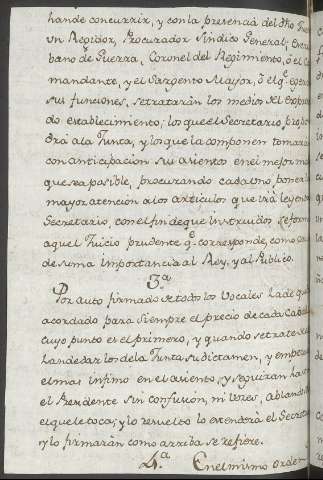 hande concurrir, y con la presencia del dho
un Regidor, Procurador Síndico General; Escri
bano de Guerra, Coronel del Regimiento, ò el Co
mandante, y el Sargento Mayor, ò el qe. egerza
sus funciones, se tratarán los medios del expresa
do establecimiento; los que el Secretario propon
drá a la Junta, y los que la componen tomarán
con anticipacion sus asientos en el mejor modo
que sea posible, procurando cada uno poner la
mayor atención a los articulos que irá leyendo
Secretario, con el fin de que instruidos se forme
aquel Juicio prudente qe. corresponde, como cosa
de suma importancia al Rey, y al Publico.
3.a
Por auto firmado de todos los Vocales ha de quedar
acordado para siempre el precio de cada Caballo
cuyo punto es el primero, y quando se trate de el
han de dar los de la Junta su dictamen, y empezará
el mas infimo en el asiento, y seguirán hasta
el Presidente sin confusion, ni voces, ablando
el que le toca; y lo resuelto lo extenderá el Secretario
y lo firmarán como arriba se refiere.
4.a En el mismo orden